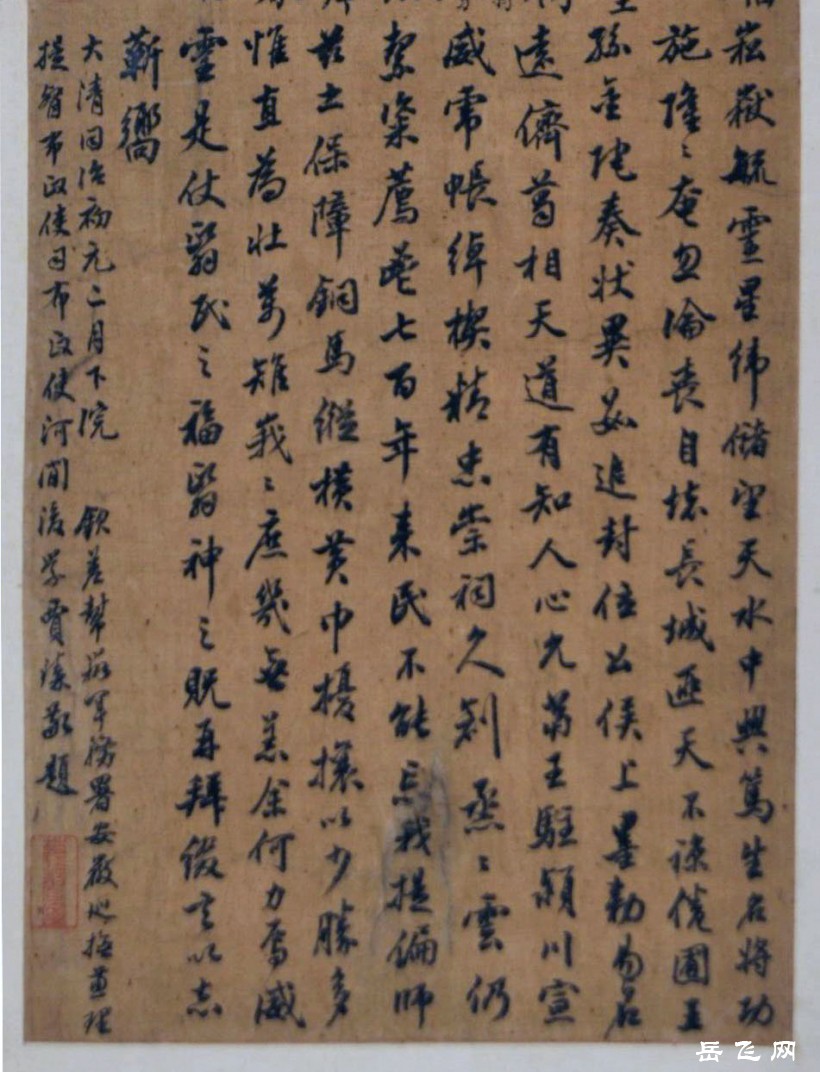 崧嶽毓靈星緯儲望天水中興篤生名將功
施隆〻奄忽淪喪自壞長城匪天不諒
孫金陀奏狀異追封位公侯上墨勅易名
遠儕葛相天道有知人心允當王駐潁川宣
威帟帳綽楔精忠崇祠久剏烝〻雲仍
絜粢薦鬯七百年來民不能忘我提偏師
茲土保障銅馬縱橫黃巾擾攘以少勝多
惟直為壯萬雉峩〻庶幾無恙余何力焉威
靈是仗翳民之福翳神之貺再拜綴言以志
蘄嚮
大清同治初元二月下浣 欽差幫辦軍務署安徽巡撫兼理
提督布政使司布政使河間後學賈臻敬題
岳飞网